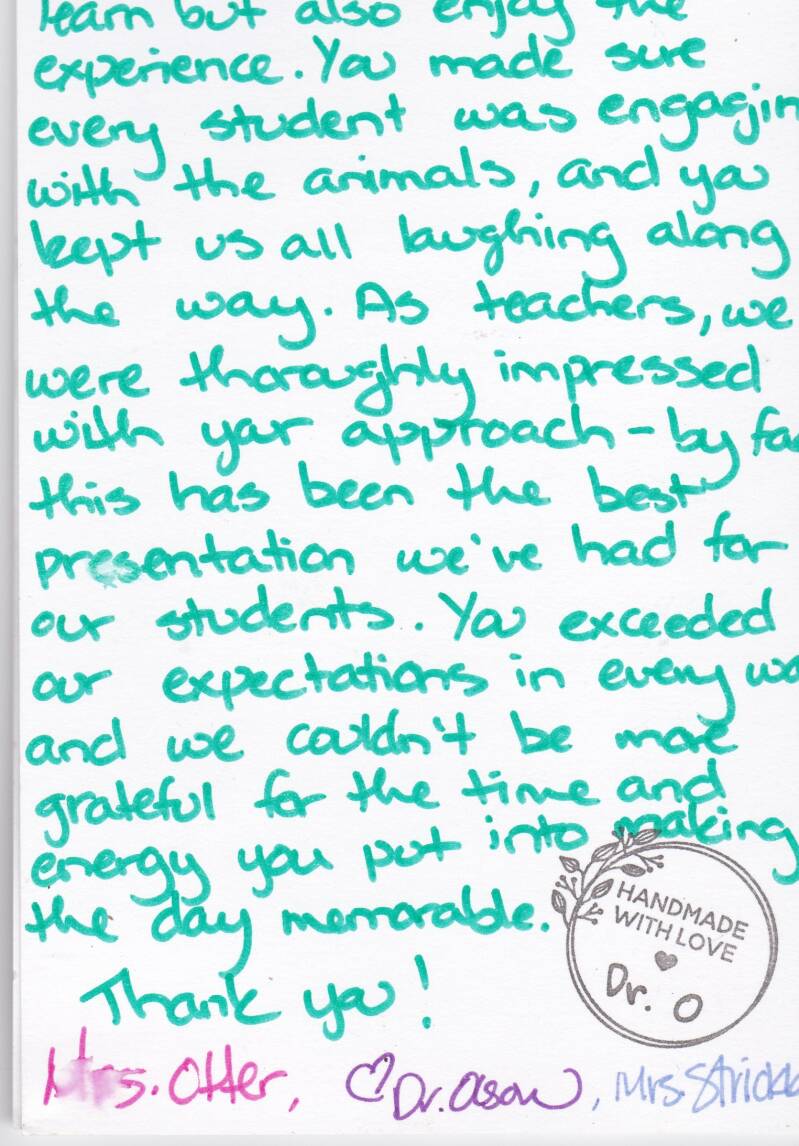 learn but also enjoy the
experience. You made sure
every student was engagin
with the animals, and you
kept us all laughing along
the way. As teachers, we
were thoroughly impressed
with your approach - by far
this has been the best
presentation we've had for
our students. You exceeded
our expectations in every wa
and we couldn't be more
grateful for the time and
energy you put into making
the day memorable.
Thank you!
HANDMADE
WITH LOVE
Dr. O
Mrs. Otter, ♡Dr. Olson, Mrs. Strickla